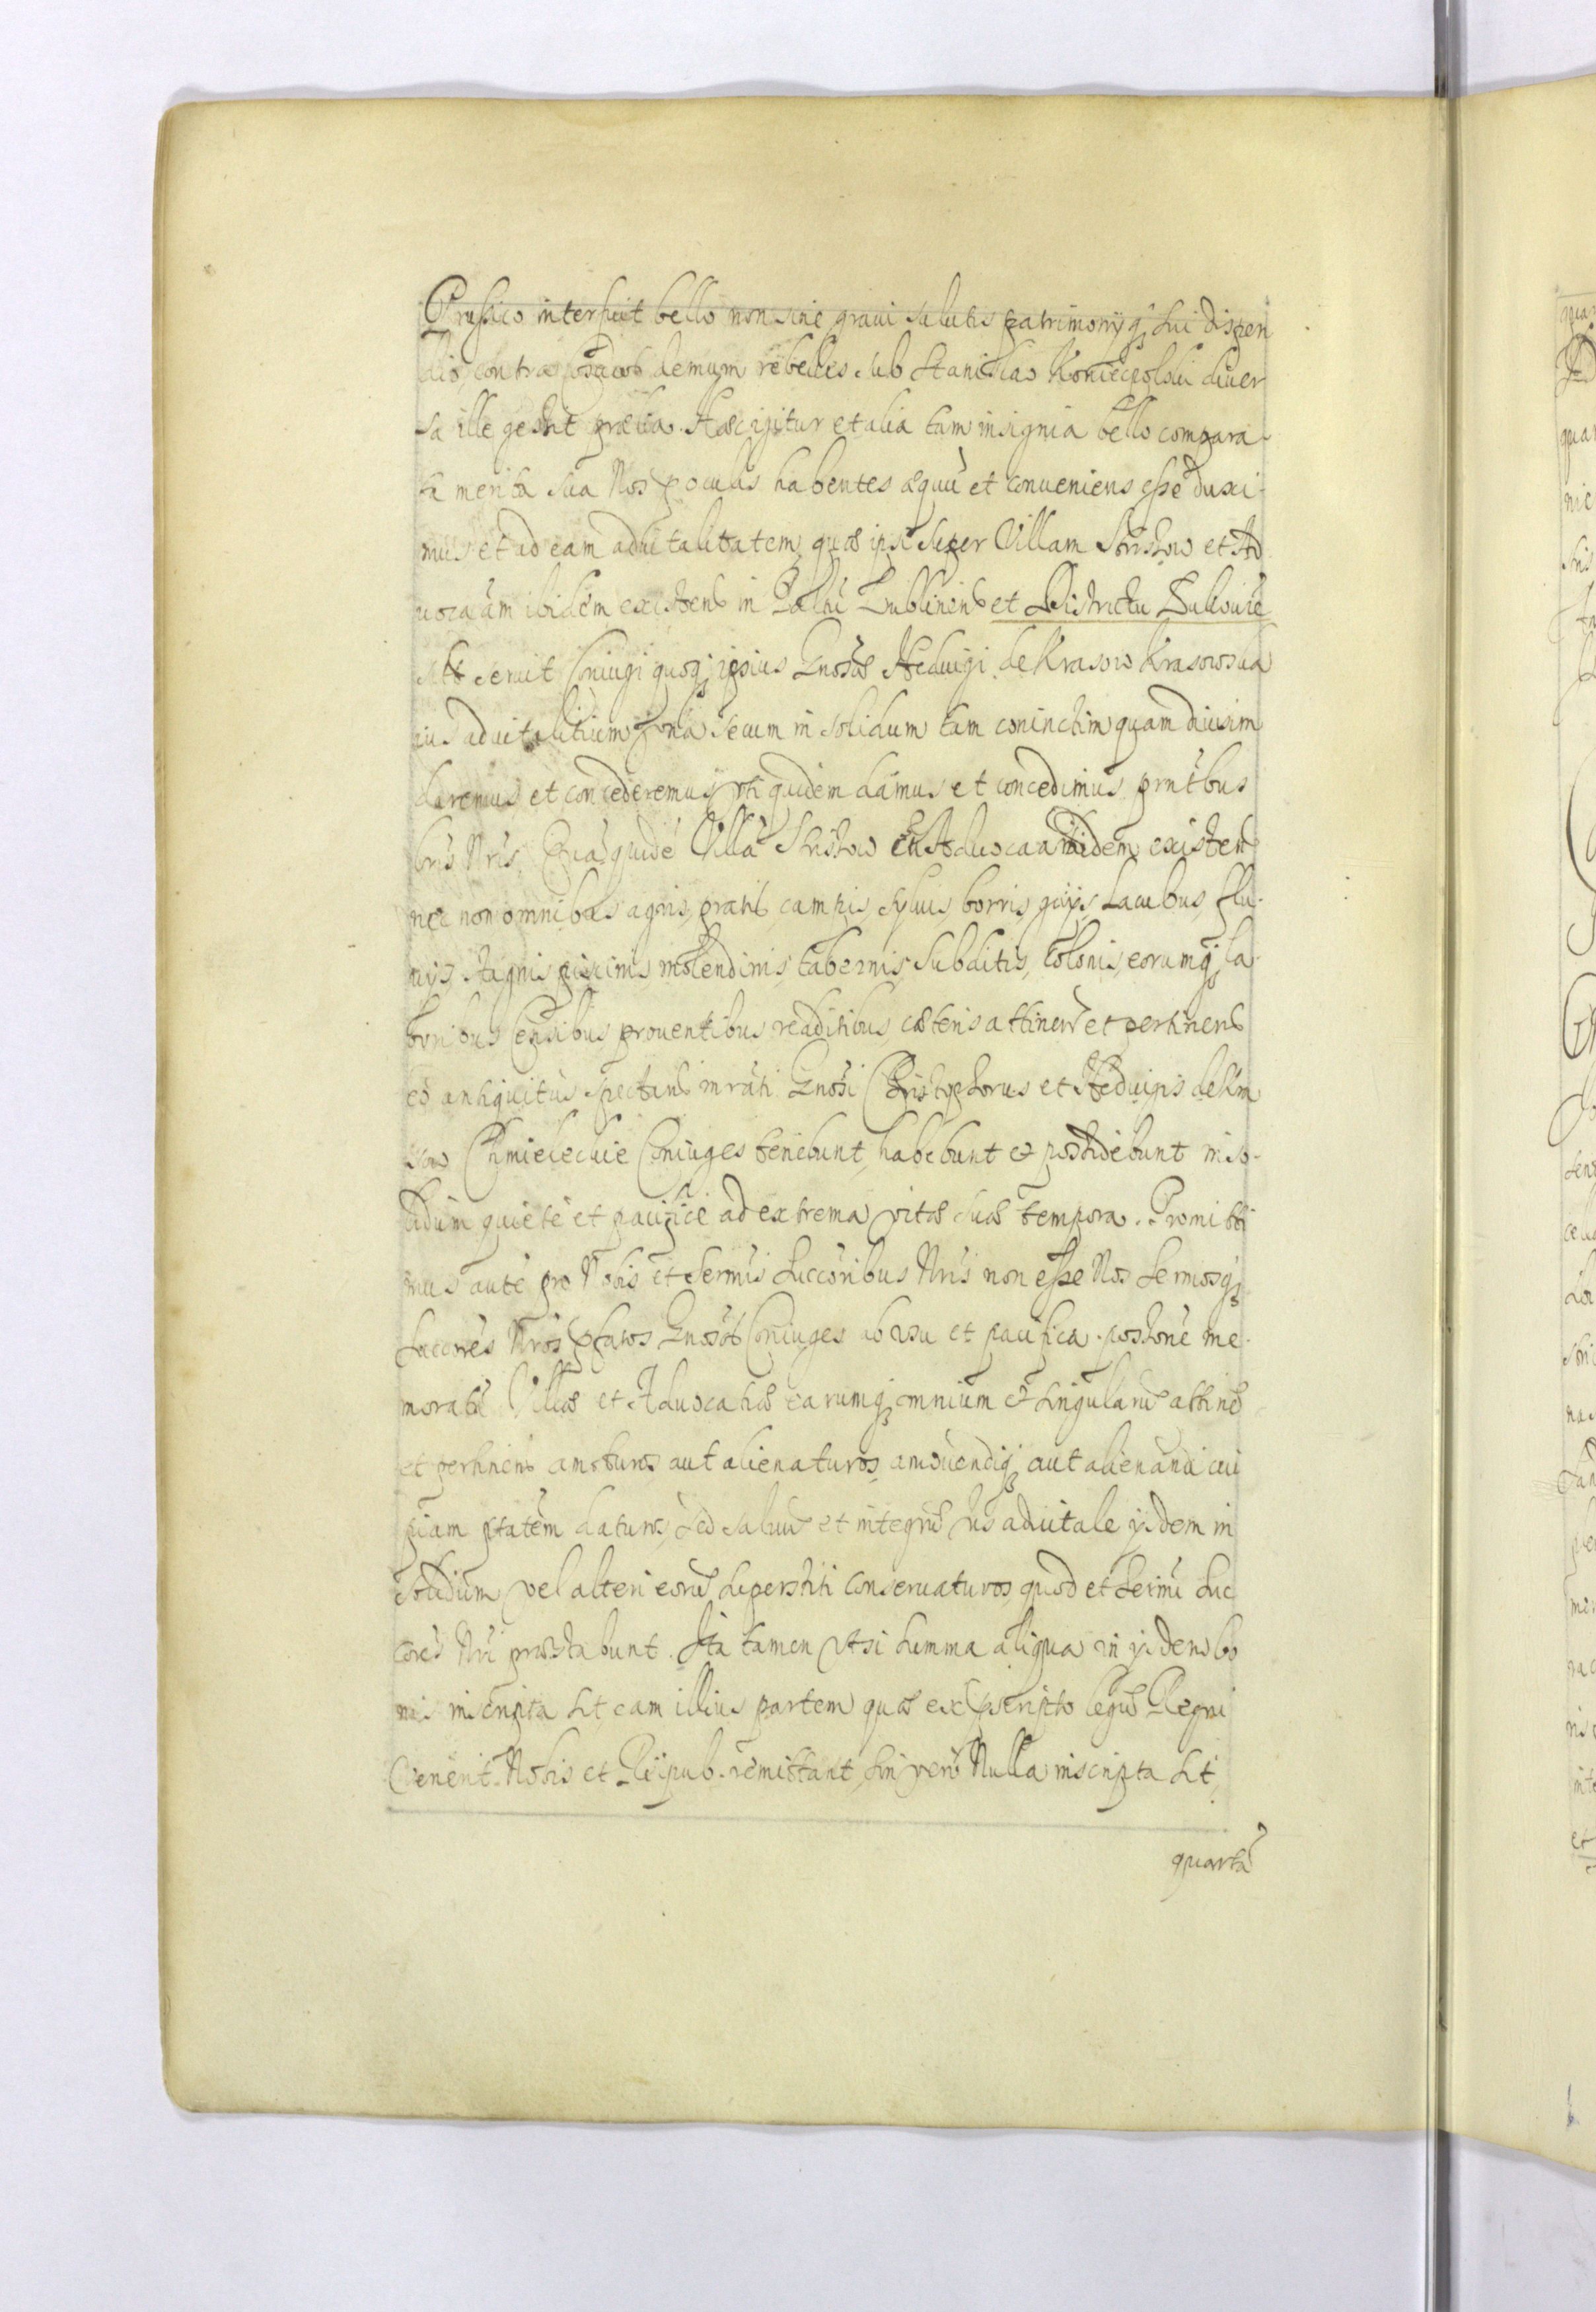 Prussico interfuit bello non sine graui salutis patrimonijq sui dispen
dio, contra Cosacos demum rebelles sub Stanislao Koniecpolski diuer
sa ille gessit prælia. Hæc igitur et alia tam insignia bello compara-
ta merita sua Nos p oculis habentes æquũ et conueniens esse duxi-
mus et ad eam aduitalitatem, quæ ipsi super Villam Strszow et Ad
uocaãm ibidem existen in Palñu Lublinen et Districtu Lukouiẽ
seruit Coniugi quoq ipsius Gnosæ Heduigi de Krasow Krasowska
ius aduitalitium vnà secum in solidum tam coniunctim quam diuisim
daremus et concederemus, vti quidem damus et concedimus pñtibus
lris Nris. Quã quidẽ Villã Strszow et Aduocaãm ibidem existen
nec non omnibus agris, pratis, campis, syluis, borris, gaijs, Lacubus, flu-
uijs, stagnis, piscinis, molendinis, tabernis, Subditis, Colonis, eorumq la-
boribus Censibus prouentibus, redditibus, cæteris attinen et pertinen
eò antiquitus spectan mrati Gnosi Christophorus et Heduigis de
Chmielecкie Coniuges tenebunt, habebunt et possidebunt in so-
lidum quietè et pacificè ad extrema vitæ suæ tempora. Promitti
mus autẽ pro Nobis et Sermis Succoribus Nris non esse Nos Sermosq
Succores Nros pfatos Gnosos Coniuges ab vsu et pacifica possone me-
moratæ Villæ et Aduocatiæ earumq omnium et singularũ attinen
et pertinen amoturos aut alienaturos, amouendiq aut alienandi cui
piam ptatem daturos, sed saluũ et integrũ Ius aduitale ijsdem in
solidum vel alteri eorũ superstiti conseruaturos, quod et Sermi Suc
cores Nri præstabunt. Ita tamen vt si summa aliqua in ijsdem bo
nis inscripta sit eam illius partem quæ ex præscripto legũ Regni
venerit Nobis et Reipub. remittant, sin verò Nulla inscripta sit,
quartã